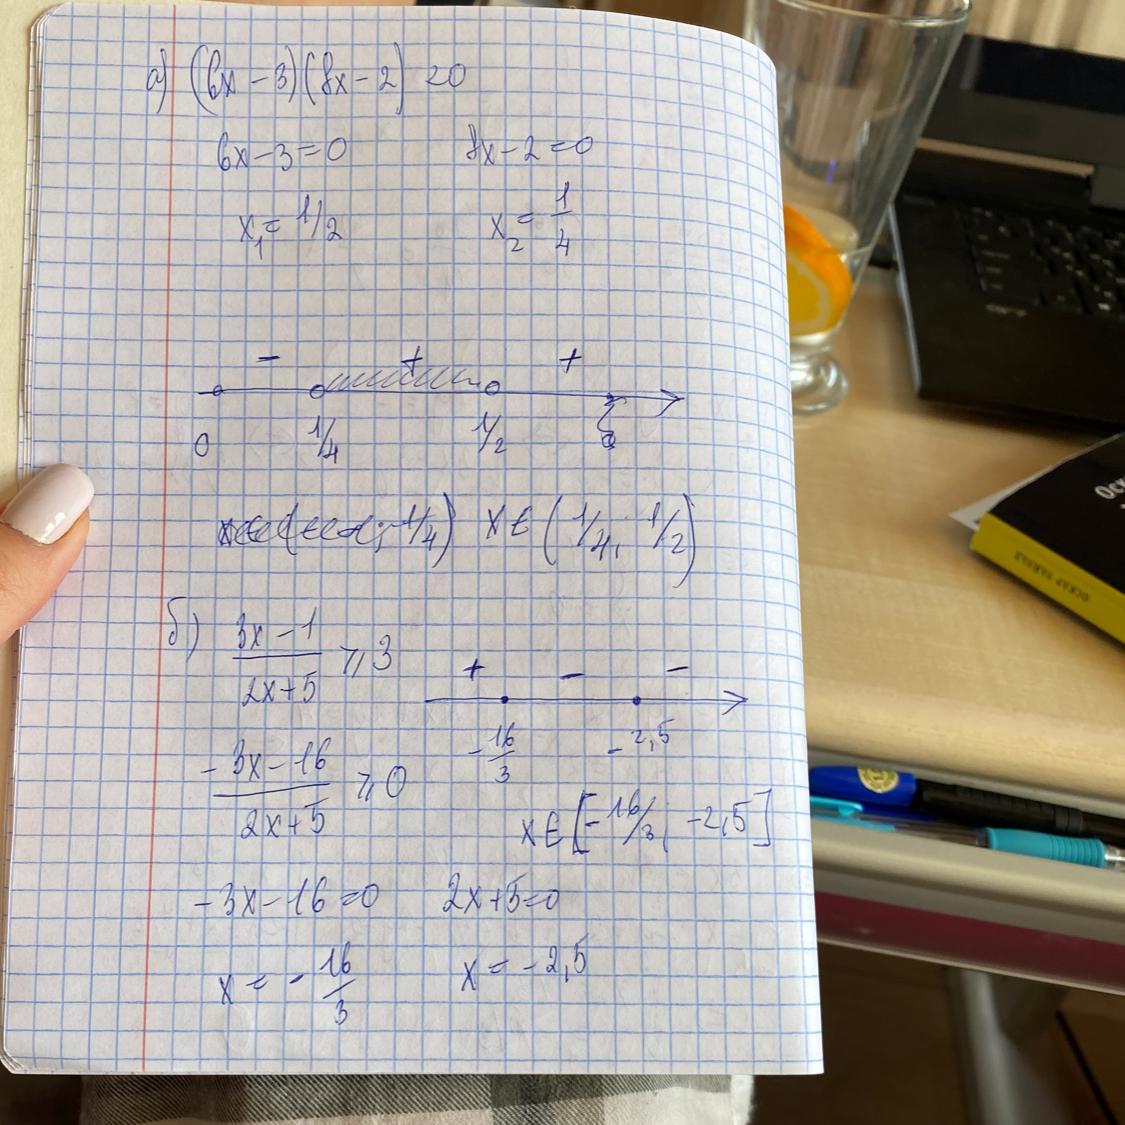 а) (6x - 3)(8x - 2) < 0
6x - 3 = 0 8x - 2 = 0
x₁ = 1/2 x₂ = 1/4
- + +
0 1/4 1/2
x ∈ (1/4; 1/2)
б) (3x - 1)/(2x + 5) ⩾ 3
+ - -
-16/3 -2,5
(-3x - 16)/(2x + 5) ⩾ 0
x ∈ [-16/3; -2,5]
-3x - 16 = 0 2x + 5 = 0
x = -16/3 x = -2,5
ОСКАР УАЙЛЬД